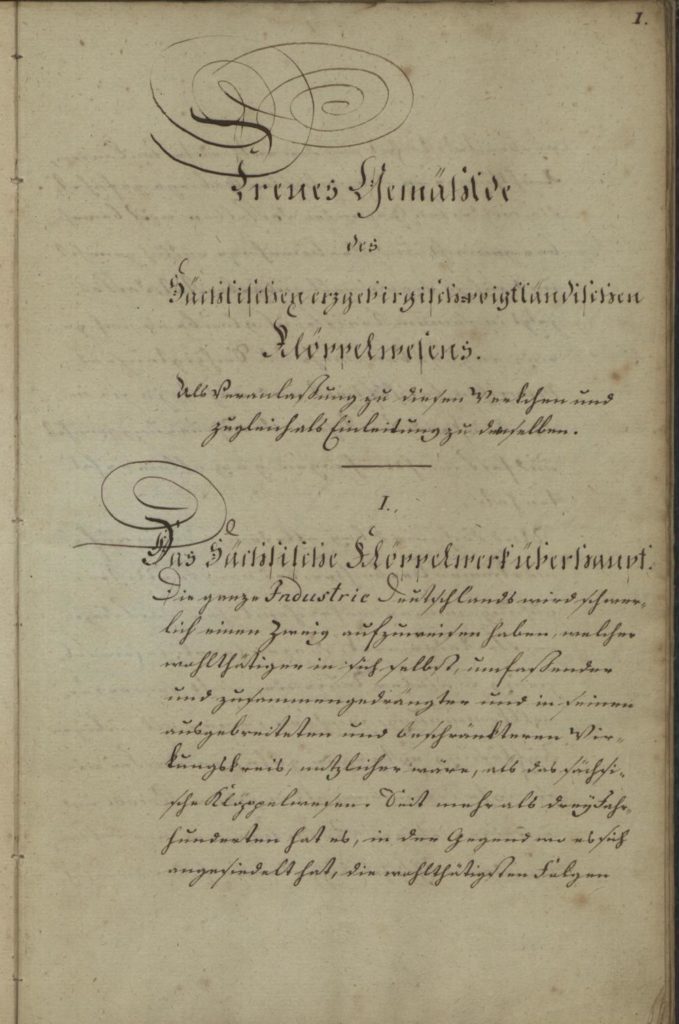 1.
Treues Gemählde
des
Sächsischen erzgebirgisch-voigtländischen
Klöppelwesens.
Als Veranlaßung zu diesen Werkchen und
zugleich als Einleitung zu demselben.
I.
Das Sächsische Klöppelwerk überhaupt.
Die ganze Industrie Deutschlands wird schwer-
lich einen Zweig aufzuweisen haben, welcher
wohlthätiger in sich selbst, umfaßender
und zusammengedrängter und in seinen
ausgebreiteten und beschränkteren Wir-
kungskreis, nützlicher wäre, als das sächsi-
sche Klöppelwesen. Seit mehr als drey Jahr-
hunderten hat es, in der Gegend wo es sich
angesiedelt hat, die wohlthätigsten Folgen